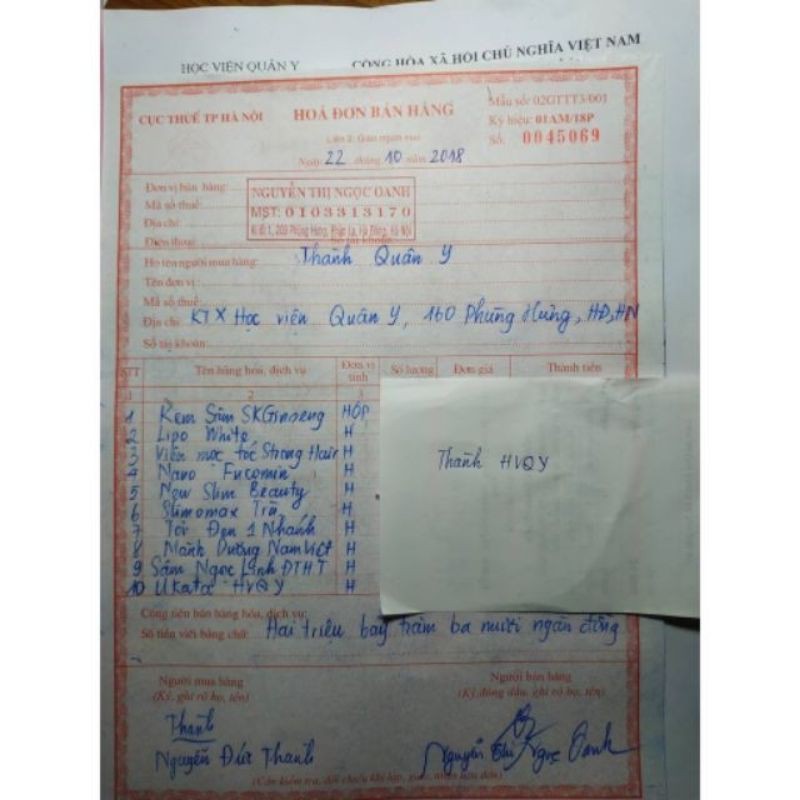 HỌC VIỆN QUÂN Y CỘNG HÒA XÃ HỘI CHỦ NGHĨA VIỆT NAM
CỤC THUẾ TP HÀ NỘI HOÁ ĐƠN BÁN HÀNG Mẫu số: 02GTTT3/001
Ký hiệu: 01AM/18P
Liên 2: Giao người mua Số: 0045069
Ngày 22 tháng 10 năm 2018
Đơn vị bán hàng: NGUYỄN THỊ NGỌC OANH
Mã số thuế: MST: 0103313170
Địa chỉ: Kiốt 1, 203 Phùng Hưng, Phúc La, Hà Đông, Hà Nội
Điện thoại: Số tài khoản
Họ tên người mua hàng: Thành Quân Y
Tên đơn vị:
Mã số thuế:
Địa chỉ: KTX Học viện Quân Y, 160 Phùng Hưng, HĐ, HN
Số tài khoản:
STT Tên hàng hóa, dịch vụ Đơn vị tính Số lượng Đơn giá Thành tiền
1 2 3
1 Kem Sâm SKGinseng HỘP
2 Lipo White H
3 Viên mọc tóc Strong Hair H
4 Nano Fucomin H
5 New Slim Beauty H
6 Slimomax Trà H
7 Tỏi Đen 1 Nhánh H
8 Mãnh Dương Nam Việt H
9 Sâm Ngọc Linh ĐTHT H
10 Ukata HVQY H
Thành HVQY
Cộng tiền bán hàng hóa, dịch vụ:
Số tiền viết bằng chữ: Hai triệu bảy trăm ba mươi ngàn đồng
Người mua hàng Người bán hàng
(Ký, ghi rõ họ, tên) (Ký, đóng dấu, ghi rõ họ, tên)
Thành
Nguyễn Đức Thành Nguyễn Thị Ngọc Oanh
(Cần kiểm tra, đối chiếu khi lập, giao, nhận hóa đơn)